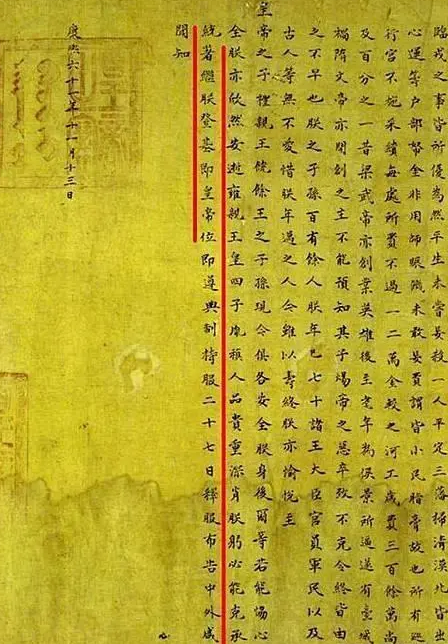 臨戎之事皆所優為然平生未嘗妄殺一人平定三藩掃清漠北皆出
心運籌戶部帑金非用師賑饑未敢妄費謂皆小民脂膏故也所有巡
行宮不施采繢每處所費不過一二萬金較之河工歲費三百餘萬尚
及百分之一昔梁武帝亦創業英雄後至耄年為侯景所逼遂有臺城
禍隋文帝亦開創之主不能預知其子煬帝之惡卒致不克令終皆由
之不早也朕之子孫百有餘人朕年已七十諸王大臣官員軍民以及
古人等無不愛惜朕年邁之人今雖以壽終朕亦愉悅至
皇帝之子禮親王饒餘王之子孫現今俱各安全朕身後爾等若能協心
全朕亦欣然安逝雍親王皇四子胤禛人品貴重深肖朕躬必能克承
統著繼朕登基即皇帝位即遵典制持服二十七日釋服布告中外咸
聞知
康熙六十一年十一月十三日